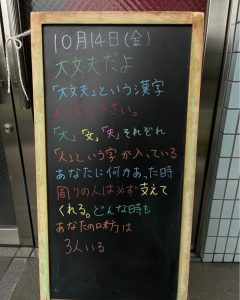 10月14日(金)
大丈夫だよ
「大丈夫」という漢字
よく見て下さい。
「大」「丈」「夫」それぞれ
「人」という字が入っている
あなたに何かあった時
周りの人は必ず支えて
くれる。どんな時も
あなたの味方は
3人いる